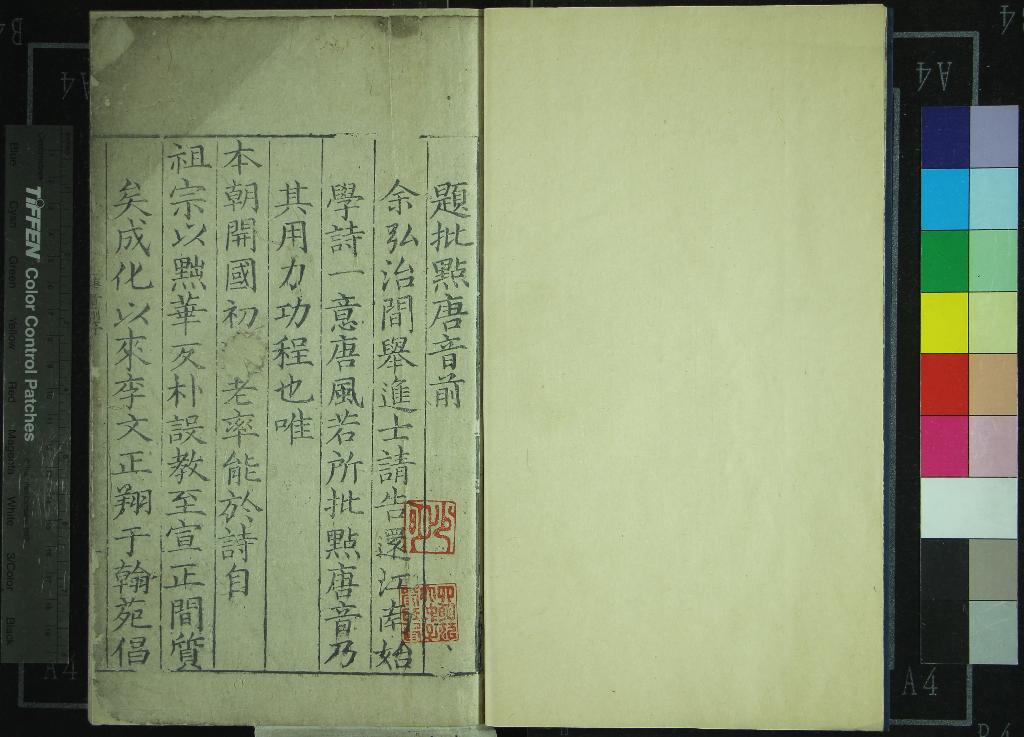 題批點唐音前
余弘治間舉進士請告還江南始
學詩一意唐風若所批點唐音乃
其用力功程也唯
本朝開國初 老率能於詩自
祖宗以黜華反朴設教至宣正間質
矣成化以來李文正翔于翰苑倡
TIFFEN Color Control Patches
Blue
Cyan
Green
Yellow
Red
Magenta
White
3/Color
Black
A4
A4
A4
A4